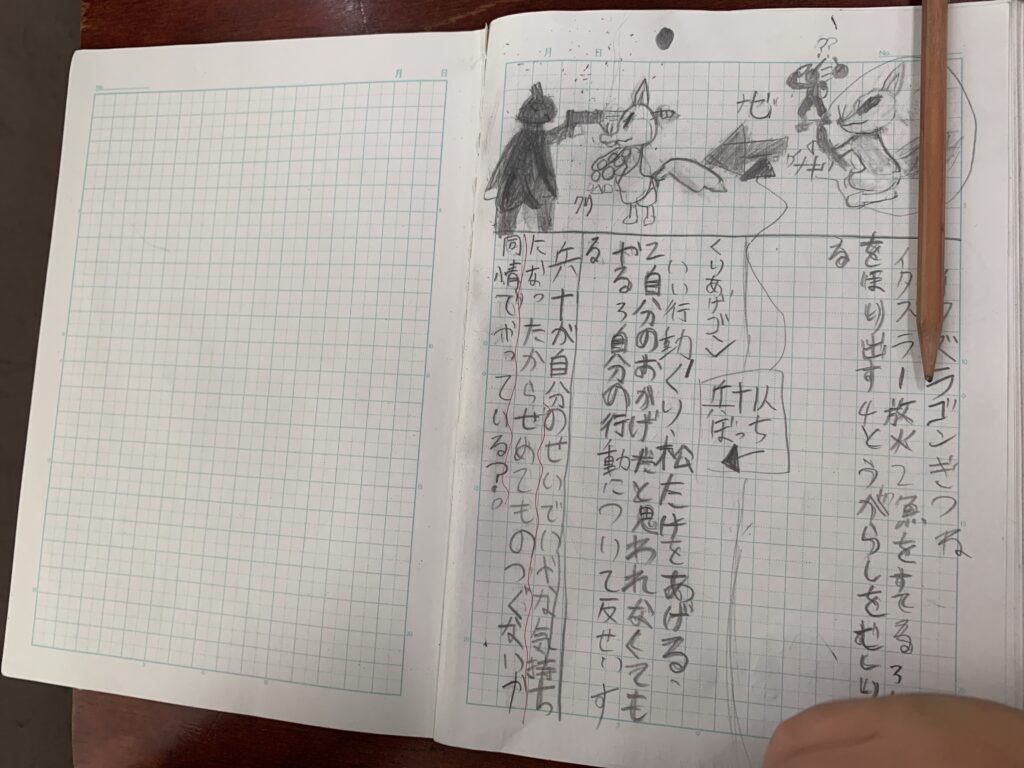 月　日
No.
月　日
No.
??
グサ
ラゴンぎつね
イタズラ1放火2魚をすてる3い
をほり出す4とうがらしをむしり
る
くりあげゴン
兵十1人
ぼっち
いい行動くり、松たけをあげる、
2自分のおかげだと思われなくても
やる3自分の行動について反せいす
る
クリ
兵十が自分のせいでいやな気持ち
になったからせめてものつぐないか
同情でやっている?。